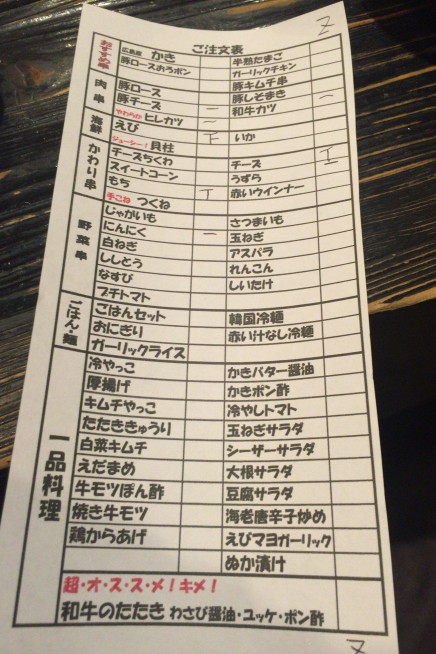 Z
ご注文表
おすすめ串
広島産 かき
半熟たまご
豚ロースおろポン
ガーリックチキン
肉串
豚ロース
豚キムチ串
豚チーズ
豚しそまき 一
やわらか ヒレカツ 一
和牛カツ
海鮮
えび 一
ジューシー! 貝柱 下
いか
かわり串
チーズちくわ
チーズ 正
スイートコーン
うずら
もち
赤いウインナー
手こね つくね 丅
野菜串
じゃがいも
さつまいも
にんにく
玉ねぎ
白ねぎ 一
アスパラ
ししとう
れんこん
なすび
しいたけ
プチトマト
ごはん・麺
ごはんセット
韓国冷麺
おにぎり
赤い汁なし冷麺
ガーリックライス
一品料理
冷やっこ
かきバター醤油
厚揚げ
かきポン酢
キムチやっこ
冷やしトマト
たたききゅうり
玉ねぎサラダ
白菜キムチ
シーザーサラダ
えだまめ
大根サラダ
牛モツぽん酢
豆腐サラダ
焼き牛モツ
海老唐辛子炒め
鶏からあげ
えびマヨガーリック
ぬか漬け
超・オ・ス・ス・メ!キメ!
和牛のたたき わさび醤油・ユッケ・ポン酢